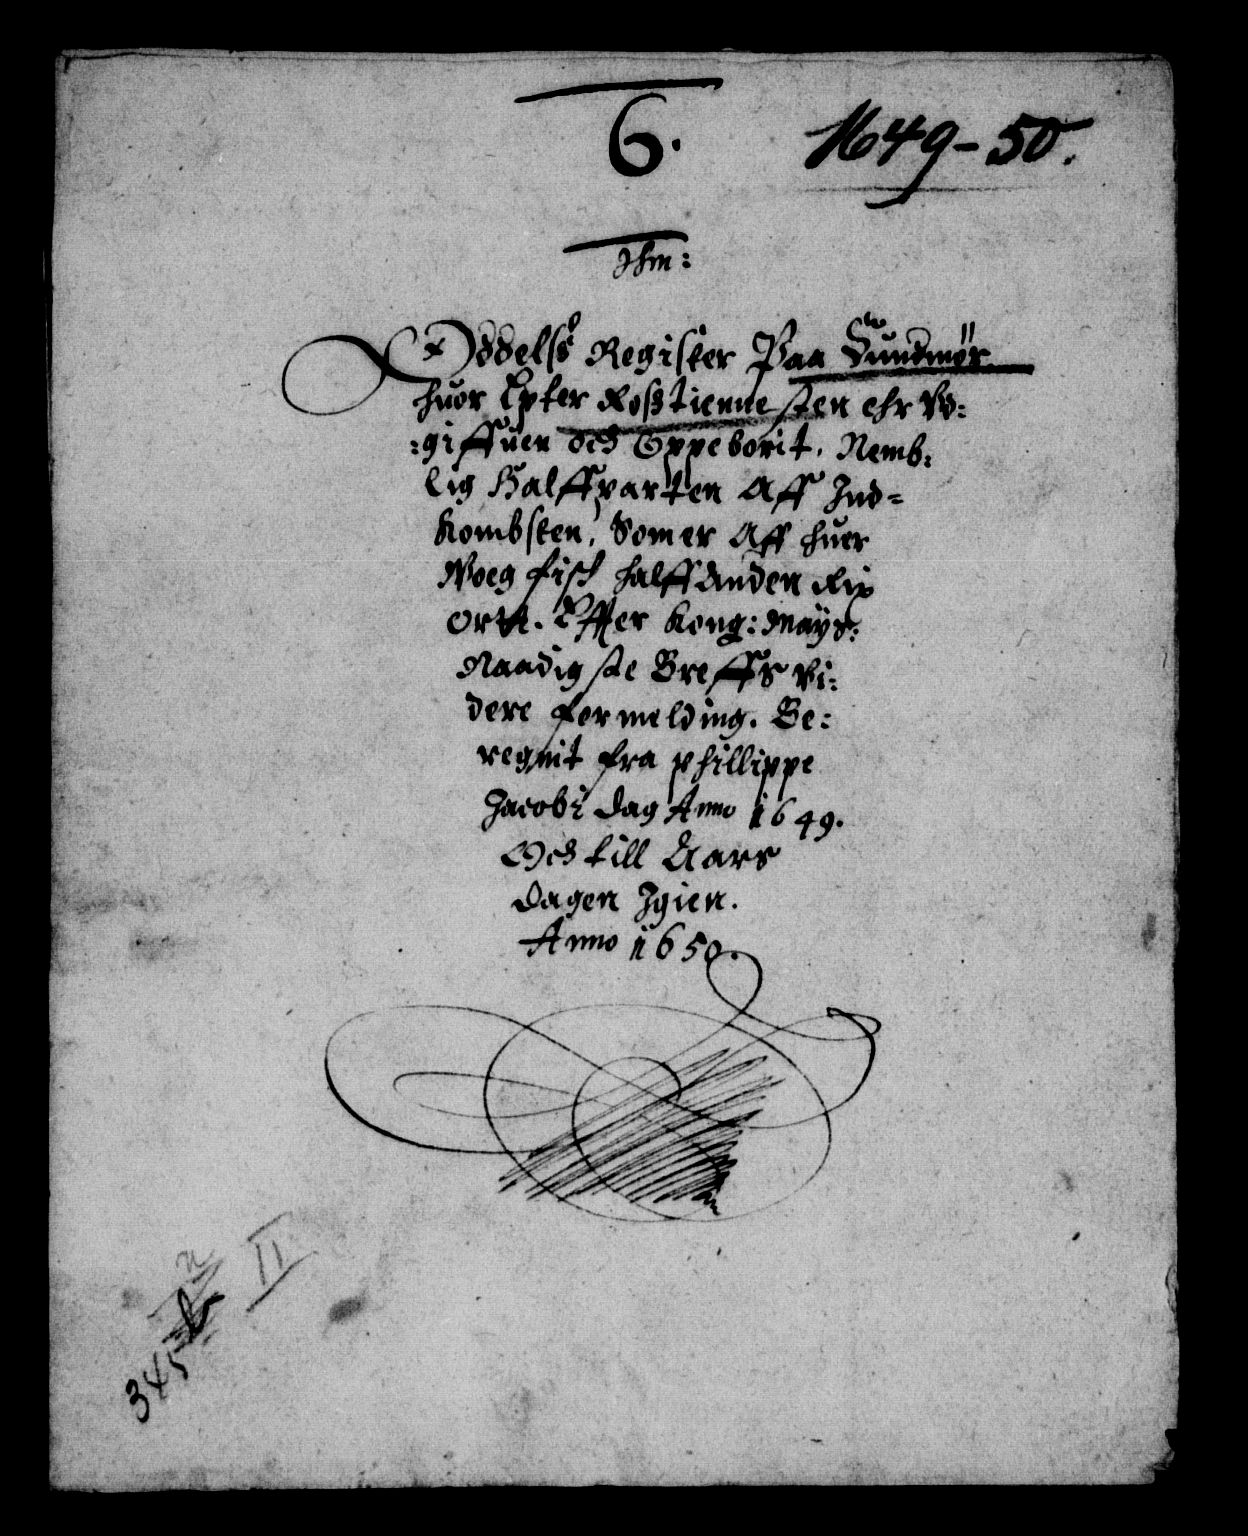 6.
1649-50.
Jhm:
Oddelß Register Paa Sundmør
huor Epter Roßtiennesten ehr Vd:
:giffuen och Oppeborit. Nemb:
lig Halffparten Aff Ind=
kombsten, Som er Aff huer
Woeg fisch halff Anden Rix
ortt. Effter Kong: Mayß:
Naadigste Breffs Vi:
dere formelding. Be:
regnit fra Phillippe
Jacobi dag Anno 1649.
Och till Aars
dagen Igien.
Anno 1650.
II
345